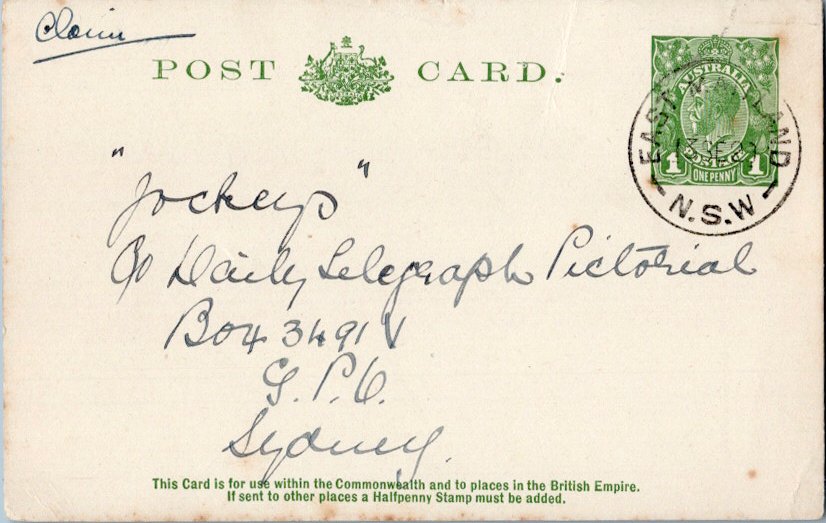 Claim
POST CARD.
AUSTRALIA
1 ONE PENNY 1
EAST MAITLAND
N.S.W
"Jockeys"
C/o Daily Telegraph Pictorial
Box 3491 V
G.P.O.
Sydney.
This Card is for use within the Commonwealth and to places in the British Empire.
If sent to other places a Halfpenny Stamp must be added.